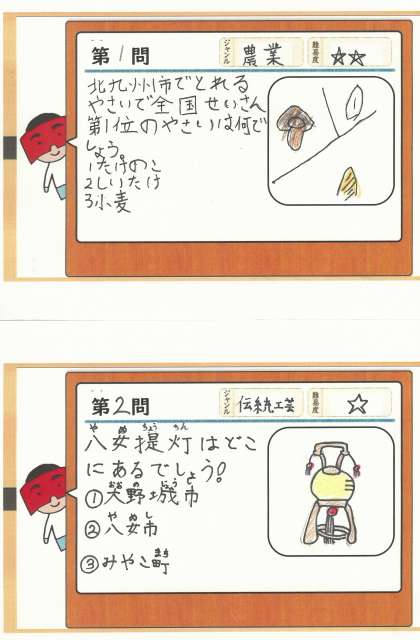 第1問
ジャンル 農業
難易度 ☆☆
北九州市でとれる
やさいで全国せいさん
第1位のやさいは何で
しょう。
1たけのこ
2しいたけ
3小麦
第2問
ジャンル 伝統工芸
難易度 ☆
八女提灯はどこ
にあるでしょう!
①大野城市
②八女市
③みやこ町